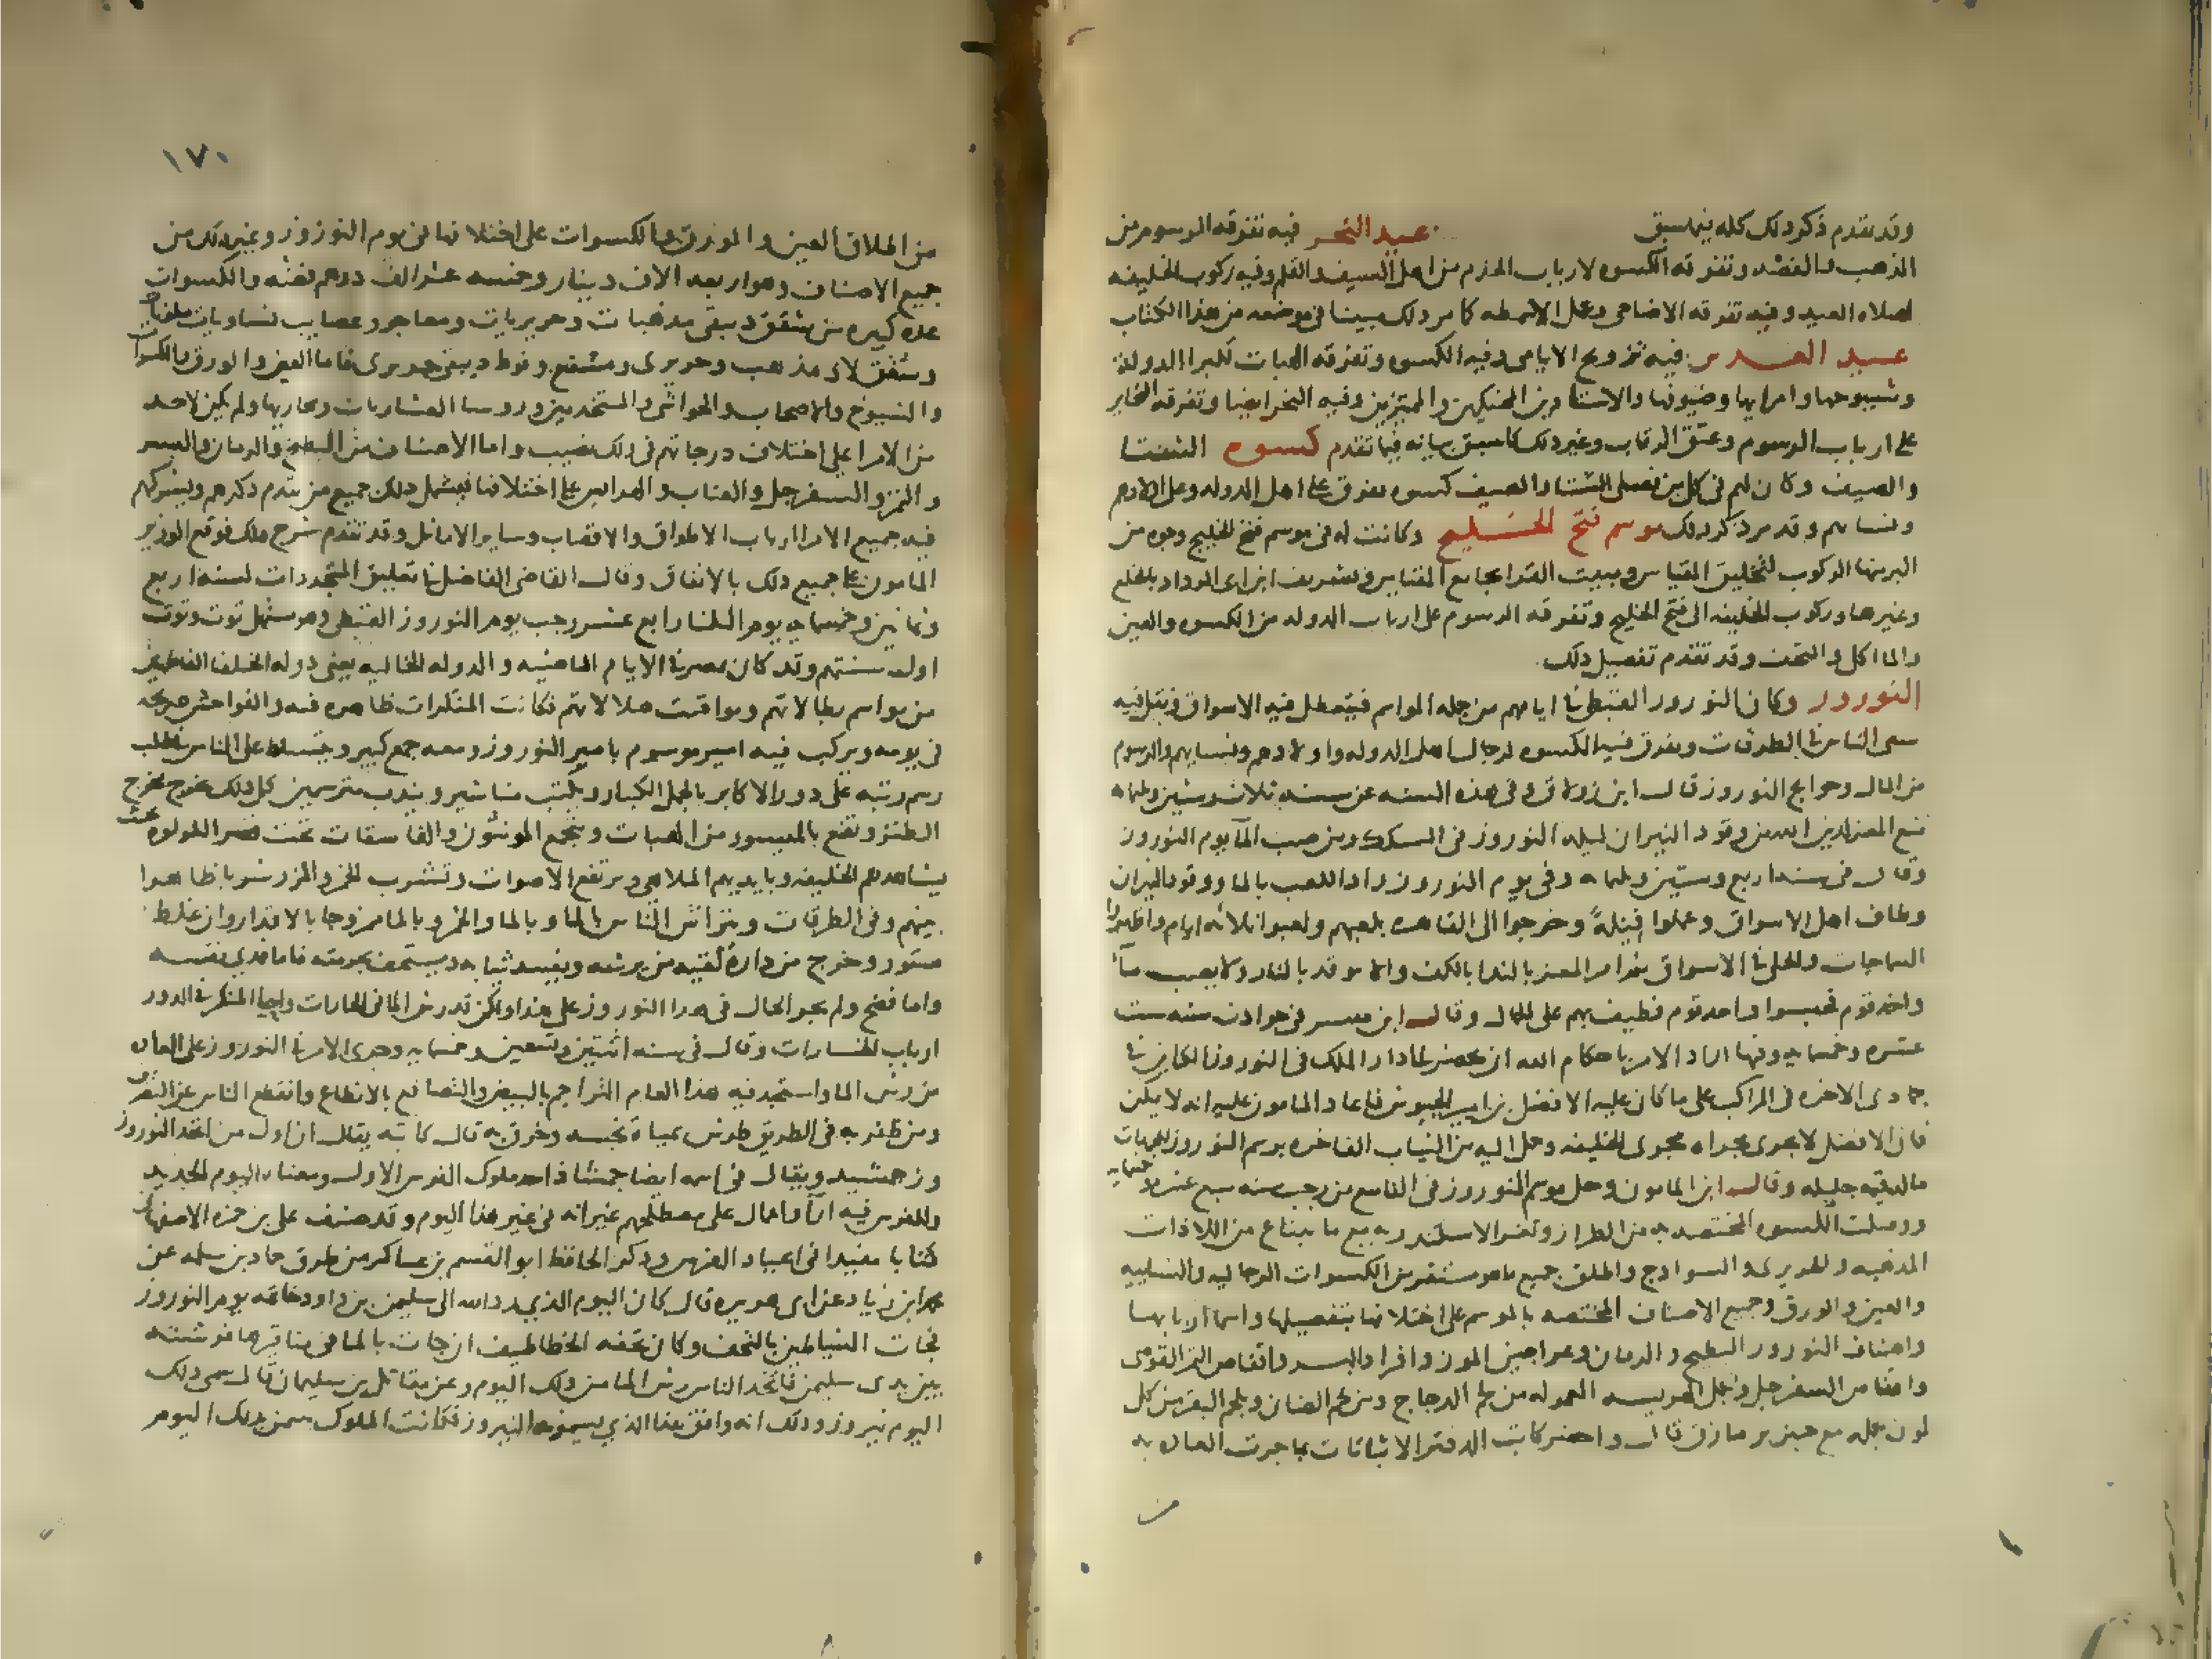 وقد تقدم ذكر ذلك كله فيما سبق عيد النحر فيه تفرقه الرسوم من
الذهب والفضه وتفرقه الكسوه لارباب الخدم من اهل السيف والقلم وفيه ركوب الخليفه
لصلاه العيد وفيه تفرقه الاضاحي وعمل الاسمطه كما مر ذلك مبينا في موضعه من هذا الكتاب
عيد الغدير فيه تزويج الايامى وفيه الكسوه وتفرقه الهبات لكبرا الدوله
وشيوخها وامرايها وضيوفها والاستادين المحنكين والمميزين وفيه النحر ايضا وتفرقه النحاير
على ارباب الرسوم وعتق الرقاب وغير ذلك كما سبق بيانه فيما تقدم كسوه الشتا
والصيف وكان لهم في كل من فصلى الشتا والصيف كسوه تفرق على اهل الدوله وعلى اولادهم
ونسايهم وقد مر ذكر ذلك موسم فتح الخليج وكانت له في موسم فتح الخليج وجوه من
البر منها الركوب لتخليق المقياس ومبيت القرا بجامع المقياس وتشريف ابن ابى الرداد بالخلع
وغيرها وركوب الخليفه الى فتح الخليج وتفرقه الرسوم على ارباب الدوله من الكسوه والعين
والماكل والتحف وقد تقدم تفصيل ذلك
النوروز وكان النوروز القبطى في ايامهم من جمله المواسم فيتعطل فيه الاسواق ويقل فيه
سعى الناس في الطرقات وتفرق فيه الكسوه لرجال اهل الدوله واولادهم ونسايهم والرسوم
من المال وحوايج النوروز قال ابن زولاق وفي هذه السنه يعني سنه ثلاث وستين وثلثمايه
منع المعز لدين الله من وقود النيران ليله النوروز في السكك ومن صب المآ يوم النوروز
وقال في سنه اربع وستين وثلثمايه وفي يوم النوروز زاد اللعب بالما ووقود النيران
وطاف اهل الاسواق وعملوا فيلةً وخرجوا الى القاهره بلعبهم ولعبوا ثلاثه ايام واظهروا
السماجات والحلى في الاسواق ثم امر المعز بالندا بالكف وان لا توقد بالنار ولا يصب مآ
واخذ قوم فحبسوا واخذ قوم فطيف بهم على الجمال وقال ابن ميسر في حوادث سنه ست
عشره وخمسمايه وفيها اراد الامر باحكام الله ان يحضر لما دار الملك في النوروز الكاين في
جمادى الاخره في المراكب على ما كان عليه الافضل بن امير الجيوش فاعاد المامون عليه انه لا يمكن
فان الافضل لا يجرى مجراه مجرى الخليفه وحمل اليه من الثياب الفاخره برسم النوروز للجهات
ماله قيمه جليله وقال ابن المامون وحل موسم النوروز في التاسع من رجب سنه سبع عشره وخمسمايه
ووصلت الكسوه المختصه به من الطراز وثغر الاسكندريه مع ما يبتاع من اللاذات
المذهبه والحريرى والسوادج واطلق جميع ما هو مستقر من الكسوات الرجاليه والنسايه
والعين والورق وجميع الاصناف المختصه بالموسم على اختلافها بتفصيلها واسما اربابها
واصناف النوروز البطيخ والرمان وعراجين الموز وافراد البسر واقفاص التمر القوصى
واقفاص السفرجل وبكل الهريسه المعموله من لحم الدجاج ومن لحم الضان ولحم البقر من كل
لون بكله مع خبز بر مازق قال واحضر كاتب الدفتر الاثباتات بما جرت العاده به
من
١٧٠
من اطلاق العين والورق والكسوات على اختلافها في يوم النوروز وغير ذلك من
جميع الاصناف وهو اربعه الاف دينار وخمسه عشر الف درهم فضه والكسوات
عده كثيره من شقق دبيقى مذهبات وحريريات ومعاجر وعصايب نساويات ملونات
وشقق لاذ مذهب وحريرى ومشفع وفوط دبيقى حريرى فاما العين والورق والكسوات
والشيوخ والاصحاب والحواشى والمستخدمين وروسا العشاريات وبحاريها ولم يكن لاحد
من الامرا على اختلاف درجاتهم في ذلك نصيب واما الاصناف من البطيخ والرمان والبسر
والتمر والسفرجل والعناب والهرايس على اختلافها فيشمل ذلك جميع من تقدم ذكرهم ويشركهم
فيه جميع الامرا ارباب الاطواق والاقصاب وساير الاماثل وقد تقدم شرح ذلك فوقع الوزير
المامون على جميع ذلك بالانفاق وقال القاضى الفاضل في تعليق المتجددات لسنه اربع
وثمانين وخمسمايه يوم الثلثا رابع عشر رجب يوم النوروز القبطى وهو مستهل توت وتوت
اول سنتهم وقد كان بمصر في الايام الماضيه والدوله الخاليه يعنى دوله الخلفا الفاطميين
من مواسم بطالاتهم ومواقيت ضلالاتهم فكانت المنكرات ظاهره فيه والفواحش صريحه
في يومه ويركب فيه امير موسوم بامير النوروز ومعه جمع كبير ويتسلط على الناس في طلب
رسم رتبه على دور الاكابر بالجمل الكبار ويكتب مناشير ويندب مترسمين كل ذلك يخرج مخرج
الطنز ويقنع بالميسور من الهبات ويجمع المونثون والفاسقات تحت قصر اللولوه بحيث
يشاهدهم الخليفه وبايديهم الملاهى وترتفع الاصوات وتشرب الخمر والمزر شربا ظاهرا
بينهم وفي الطرقات ويتراش الناس بالما وبالما والخمر وبالما ممزوجا بالاقذار وان غلط
مستور وخرج من داره لقيه من يرشه ويفسد ثيابه ويستخف بحرمته فاما فدى نفسه
واما فضح ولم يجر الحال في هذا النوروز على هذا ولكن قد رش الما في الحارات واحيا المنكر في الدور
ارباب الخسارات وقال في سنه اثنتين وتسعين وخمسمايه وجرى الامر في النوروز على العاده
من رش الما واستجد فيه هذا العام التراجم بالبيض والتصافع بالانطاع وانقطع الناس عن التصرف
ومن ظفر به في الطريق طرش بمياه نجسه وخرق به قال كاتبه يقال ان اول من اتخذ النوروز
وز جمشيد ويقال في اسمه ايضا جمشاذ احد ملوك الفرس الاول ومعناه اليوم الجديد
وللفرس فيه ارآ واعمال على مصطلحهم غير انه في غير هذا اليوم وقد صنف على بن حمزه الاصفهانى
كتابا مفيدا في اعياد الفرس وذكر الحافظ ابو القسم بن عساكر من طرق حماد بن سلمه عن
محمد بن زياد عن ابى هريره قال كان اليوم الذي رد الله الى سليمن بن داود خاتمه يوم النوروز
فجات الشياطين بالتحف وكان تحفه الخطاطيف ان جات بالما في مناقيرها فرشته
بين يدى سليمن فاتخذ الناس رش الما من ذلك اليوم وعن مقاتل بن سليمان قال سمى ذلك
اليوم نيروز وذلك انه وافق هذا الذي يسمونه النيروز فكانت الملوك تيمن بذلك اليوم